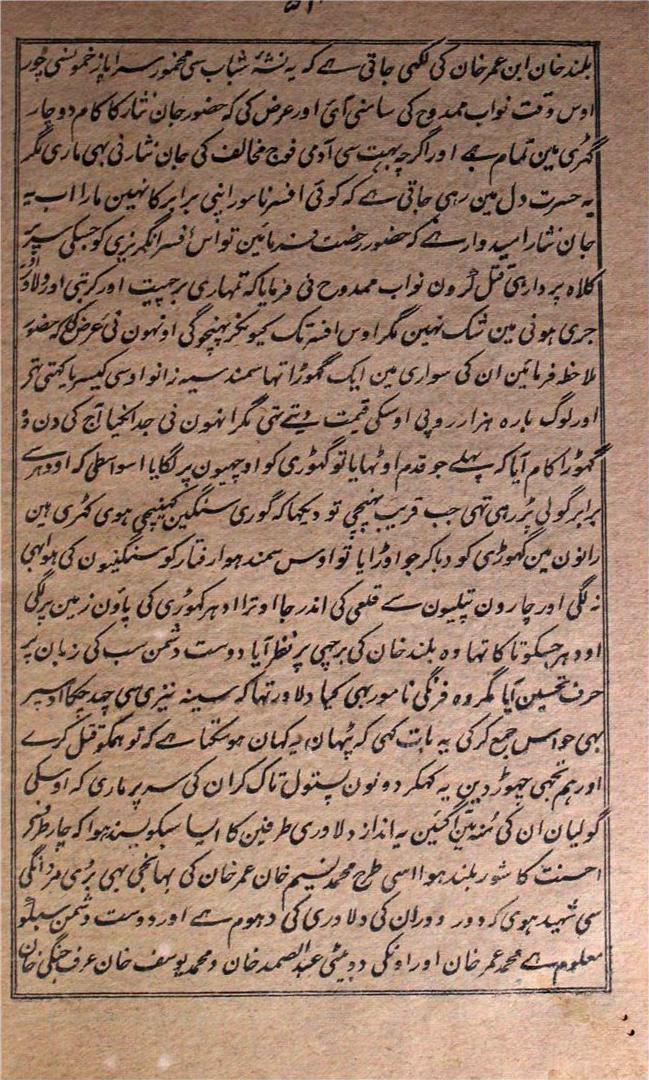 بلند خان ابن عمر خان کی لکھی جاتی ہے کہ یہ نشۂ شباب سی مخمور سراپا زخمونسی چور
اوس وقت نواب ممدوح کی سامنی آئی اور عرض کی کہ حضور جان نثار کا کام دو چار
گھڑی مین تمام ہے اور اگرچہ بہت سی آدمی فوج مخالف کی جان نثار نی بھی ماری مگر
یہ حسرت دل مین رہی جاتی ہے کہ کوئی افسر نامور اپنی برابر کا نہین مارا اب یہ
جان نثار امیدوار ہے کہ حضور رخصت فرمائین تو اس افسر انگریزی کو جسکی سر پر
کلاہ پردار ہی قتل کرون نواب ممدوح نی فرمایا کہ تمہاری برجیت اور کرتبی اور دلاور اور
جری ہونی مین شک نہین مگر اوس افسر تک کیونکر پہنچوگی اونہون نی عرض کی کہ حضور
ملاحظہ فرمائین ان کی سواری مین ایک گھوڑا تہا سمند سیہ زانو اوسی کیسریا کہتی تہی
اور لوگ بارہ ہزار روپی اوسکی قیمت دیتے تہی مگر انہون نی جدا نکیا آج کی دن وہ
گھوڑا کام آیا کہ پہلے جو قدم اوٹہایا تو گھوڑی کو اوچھیون پر لگایا اسواسطی کہ اودہر سے
برابر گولی پڑ رہی تہی جب قریب پہنچی تو دیکہا کہ گوری سنگین کہینچی ہوی کہڑی ہین
رانون مین گھوڑی کو دبا کر جو اوڑایا تو اوس سمند ہوا رفتار کو سنگینون کی ہوا بھی
نہ لگی اور چارون پتلیون سے قلعی کی اندر جا اوترا ادہر گھوڑی کی پاؤن زمین پر لگی
اودہر جسکو تاکا تہا وہ بلند خان کی برچھی پر نظر آیا دوست دشمن سب کی زبان پر
حرف تحسین آیا مگر وہ فرنگی نامور بھی کیا دلاور تہا کہ سینہ نیزی سی چھد چکا اسپر
بھی حواس جمع کر کی یہ بات کہی کہ پٹھان یہ کہان ہوسکتا ہے کہ تو ہمکو قتل کرے
اور ہم تجہی چھوڑ دین یہ کہکر دونون پستول تاک کر ان کی سر پر ماری کہ اوسکی
گولیان ان کی منہ مین آ گئین یہ انداز دلاوری طرفین کا ایسا سبکو پسند ہوا کہ چار طرف
احسنت کا شور بلند ہوا اسی طرح محمد نسیم خان عمر خان کی بہانجی بھی بڑی مردانگی
سی شہید ہوی کہ دور دور ان کی دلاوری کی دہوم ہے اور دوست دشمن سبکو
معلوم ہے محمد عمر خان اور اونکی دو بیٹی عبد الصمد خان و محمد یوسف خان عرف جنگی خان